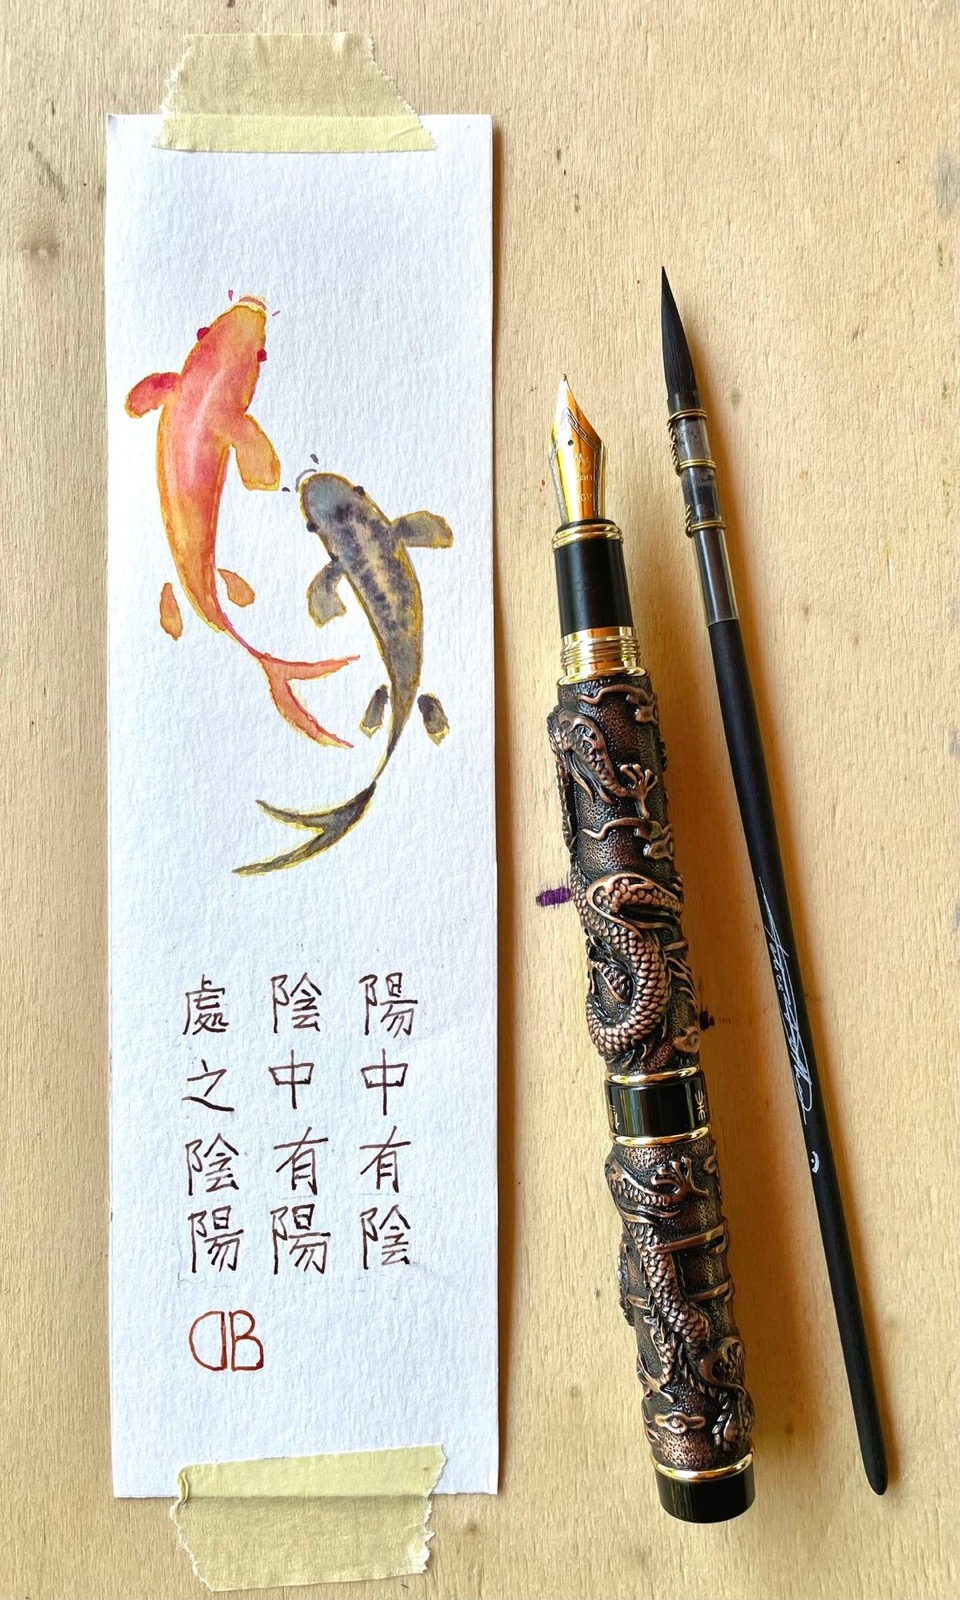 陽中有陰
陰中有陽
處之陰陽
DB